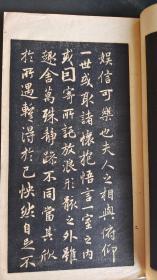 娱信可樂也夫人之相與俯仰
一世或取諸懷抱悟言一室之內
或因寄所託放浪形骸之外雖
趣舍萬殊静躁不同當其欣
於所遇暫得於己怏然自足不